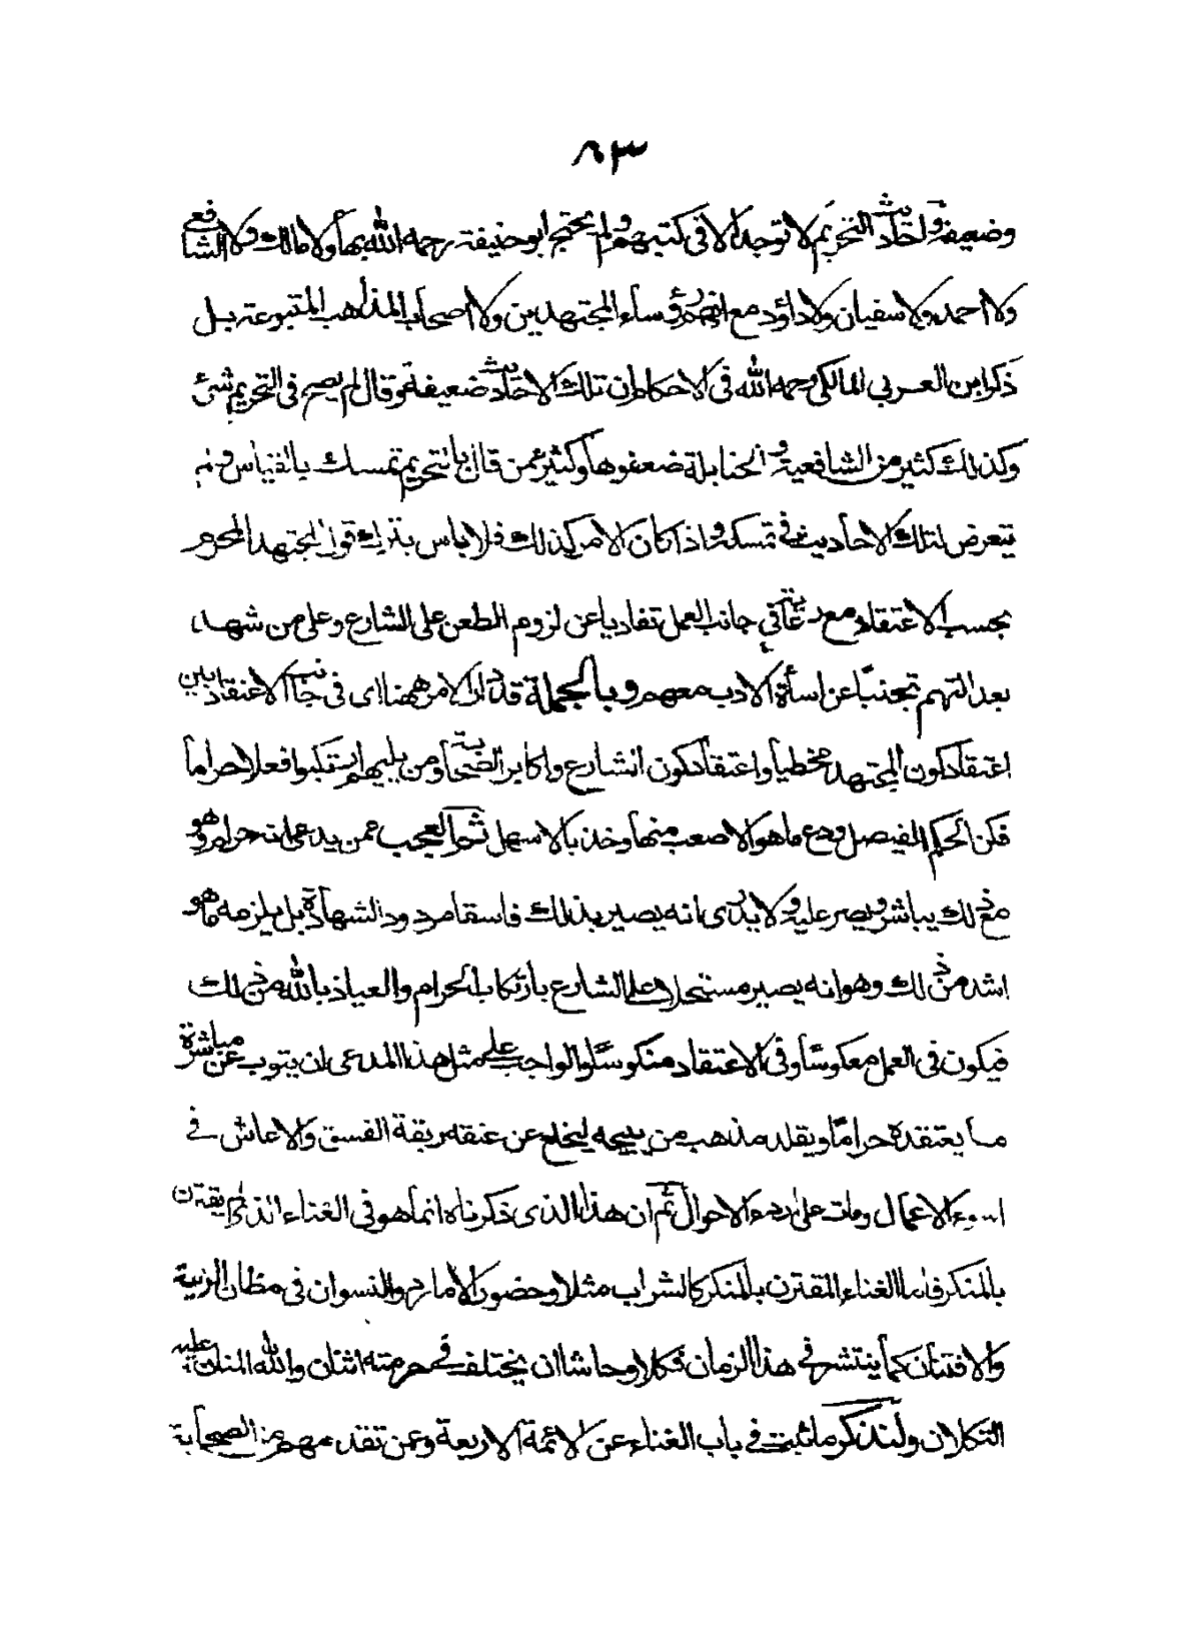 ٨٣
وضعيفة واحاديث التحريم لا توجد الا فى كتبهم ولم يحتج ابو حنيفة رحمه الله بها ولا مالك ولا الشافعى
ولا احمد ولا سفيان ولا داؤد مع انهم رؤساء المجتهدين ولا اصحاب المذاهب المتبوعة بل
ذكر ابن العربي المالكى رحمه الله فى الاحكام ان تلك الاحاديث ضعيفة وقال لم يصح فى التحريم شئ
وكذلك كثير من الشافعية والحنابلة ضعفوها وكثير ممن قال بالتحريم تمسك بالقياس ولم
يتعرض لتلك الاحاديث فى تمسكه واذا كان الامر كذلك فلا باس بترك قول المجتهد المحرم
بحسب الاعتقاد مع فى جانب العمل تفاديا عن لزوم الطعن على الشارع وعلى من شهد
بعدالتهم تجنبًا عن اساءة الادب معهم وبالجملة قد دار الامر ههنا اى فى جانب الاعتقاد بين
اعتقاد كون المجتهد مخطيا واعتقاد كون الشارع واكابر الصحابة ومن يليهم ارتكبوا فعلا حراما
فكن الحكم الفيصل ودع ما هو الاصعب منهما وخذ بالاسهل ثم العجب ممن يدعى انه حرام وهو
مع ذلك يباشر ويصر عليه ولا يدرى انه يصير بذلك فاسقا مردود الشهادة بل يلزمه ما هو
اشد من ذلك وهو انه يصير مستحلا على الشارع بارتكاب الحرام والعياذ بالله من ذلك
فيكون فى العمل معكوسًا وفى الاعتقاد منكوسًا والواجب على مثل هذا المدعى ان يتوب عن مباشرة
ما يعتقده حرامًا ويقلد مذهب من يبيحه ليخلع عن عنقه ربقة الفسق والا عاش فى
اسوء الاعمال ومات على اردء الاحوال ثم ان هذا الذى ذكرناه انما هو فى الغناء الذى لم يقترن
بالمنكر فاما الغناء المقترن بالمنكر كالشراب مثلا وحضور الامارد والنسوان فى مظان الريبة
والافتتان كما ينتشر فى هذا الزمان فكلا وحاشا ان يختلف فى حرمته اثنان والله المنان عليه
التكلان ولنذكر ما ثبت فى باب الغناء عن الائمة الاربعة وعمن تقدمهم من الصحابة